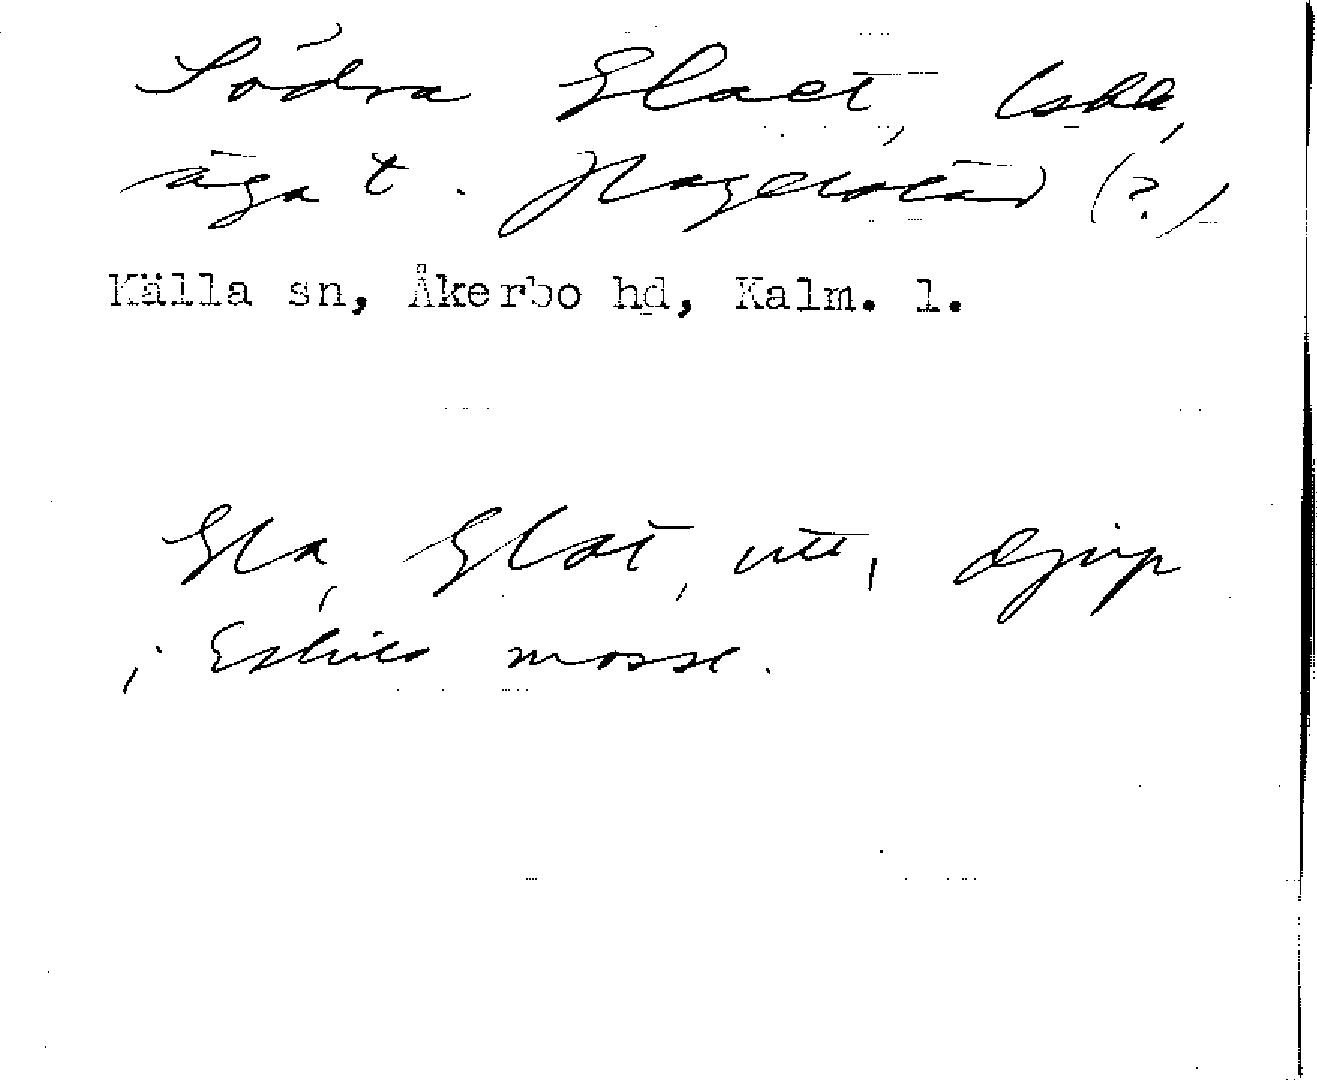 Södra Glaet,
äga t. Hagelstad (?)
Källa sn, Åkerbo hd, Kalm. l.
Gla, Glat, utt, djup
i Eskils mosse.